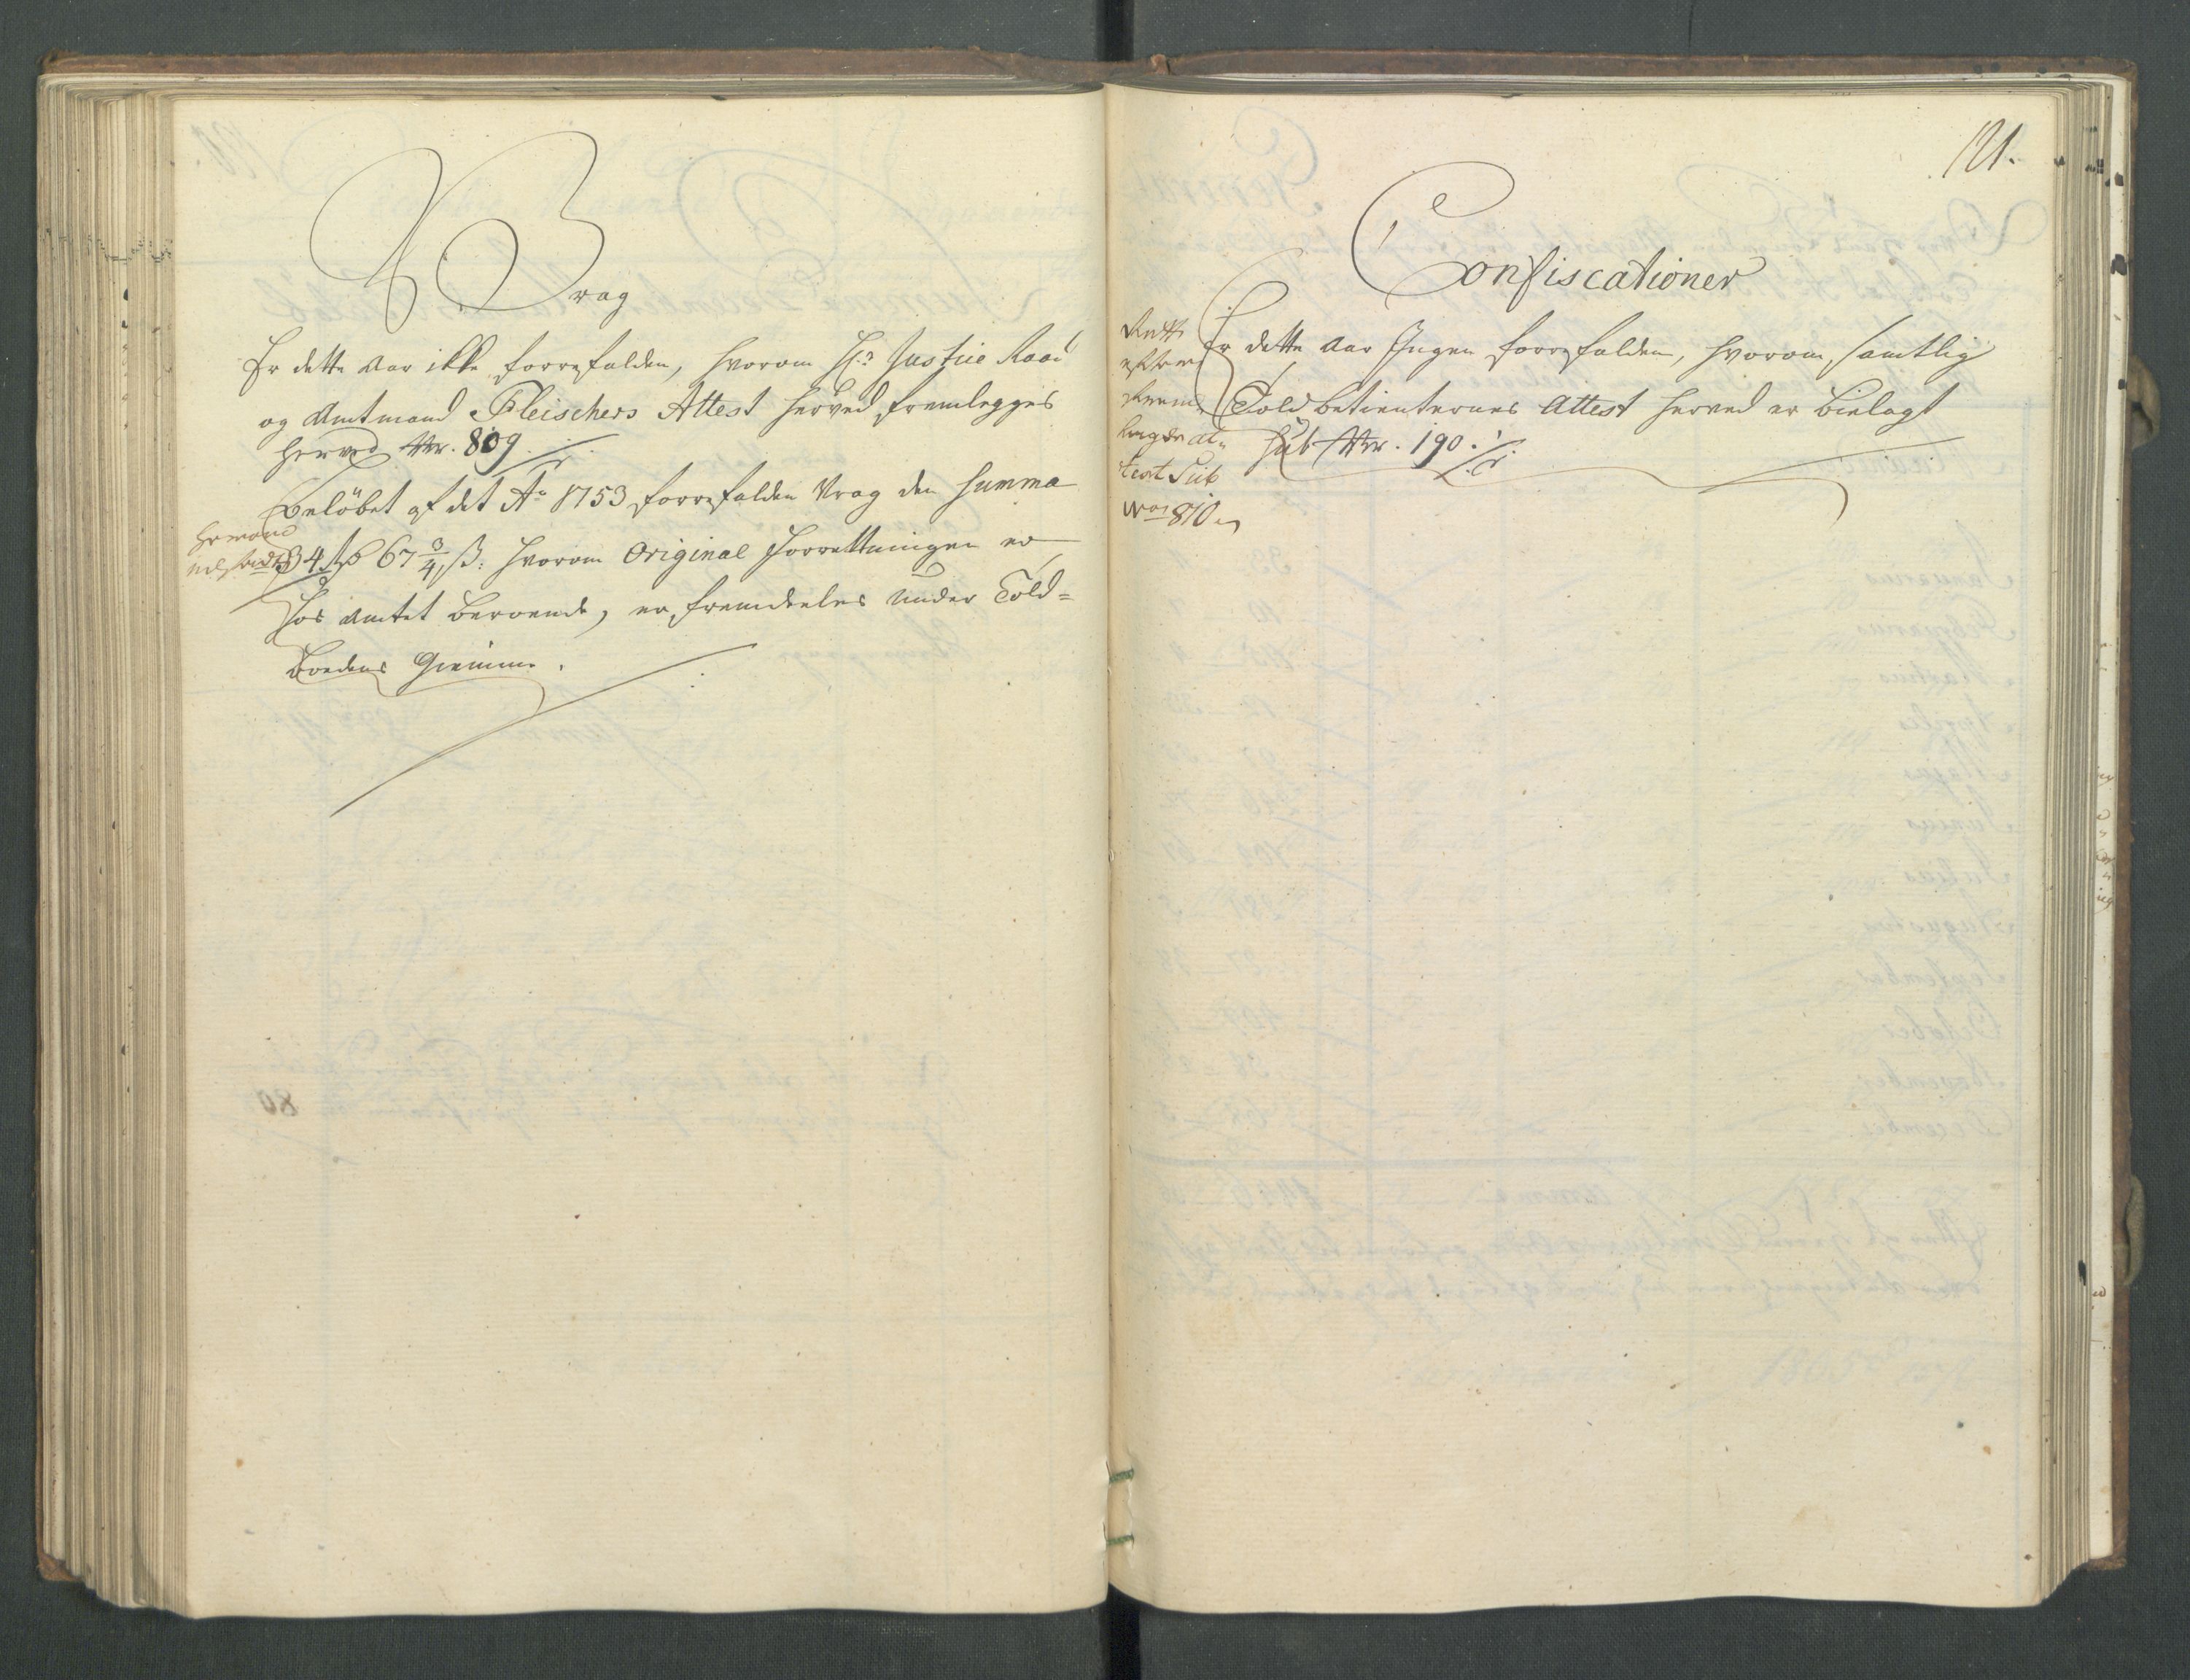 Vrag
Er dette Aar ikke forrefalden, hvorom Hr. Justice Raad
og Amtmand Fleischers Attest herved fremlegges
herved Nr. 809
Beløbet af det Ao 1753 forrefalden Vrag den Summa
34 rd 67 3/4 ß: hvorom Original Forrettningen er
hos Amtet beroende, er fremdeeles under Told-
boedens Giemme.
121.
Confiscationer
Er dette Aar Ingen forrefalden, hvorom samtlig
Toldbetienternes Attest herved er bielagt
sub Nr. 190.
Rett
efter
frem
lagde At-
test Sub
No 810